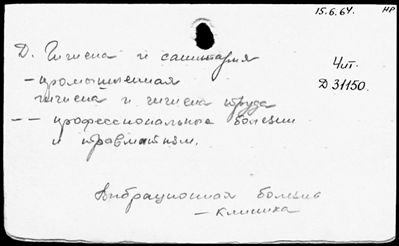 15.6.64. НР
Д. Гигиена и санитария
Чит.
- промышленная
Д 31150.
гигиена и гигиена труда
-- профессиональные болезни
и травматизм.
Вибрационная болезнь
- клиника